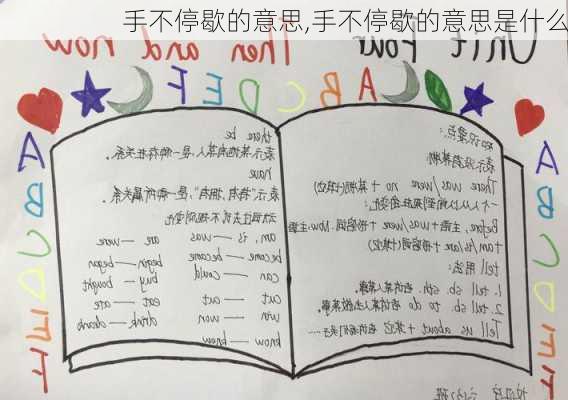 手不停歇的意思,手不停歇的意思是什么
Unit Four Then and now
A B C D E F
知识要点:
表示没有某物
There was/were no + 某物(过去)
一个人从以前到现在的变化:
Before, 主语+was/were+形容词. Now 主语
+am/is/are+形容词(其它)
tell 用法:
1. tell sb. sth 告诉某人某事.
2. tell sb to do 告诉某人去做某事.
Tell us about + 其它 告诉我们关于……
there be
表示某地有某人某物,是一种存在关系.
have
表示"持有,拥有",是一种所属关系.
动词过去式不规则变化
am, is — was are — were
become — became begin — began
can — could buy — bought
cut — cut eat — ate
win — won drink — drank
know — knew
A
B
C
D
E
F
A
B
C
D
E
F